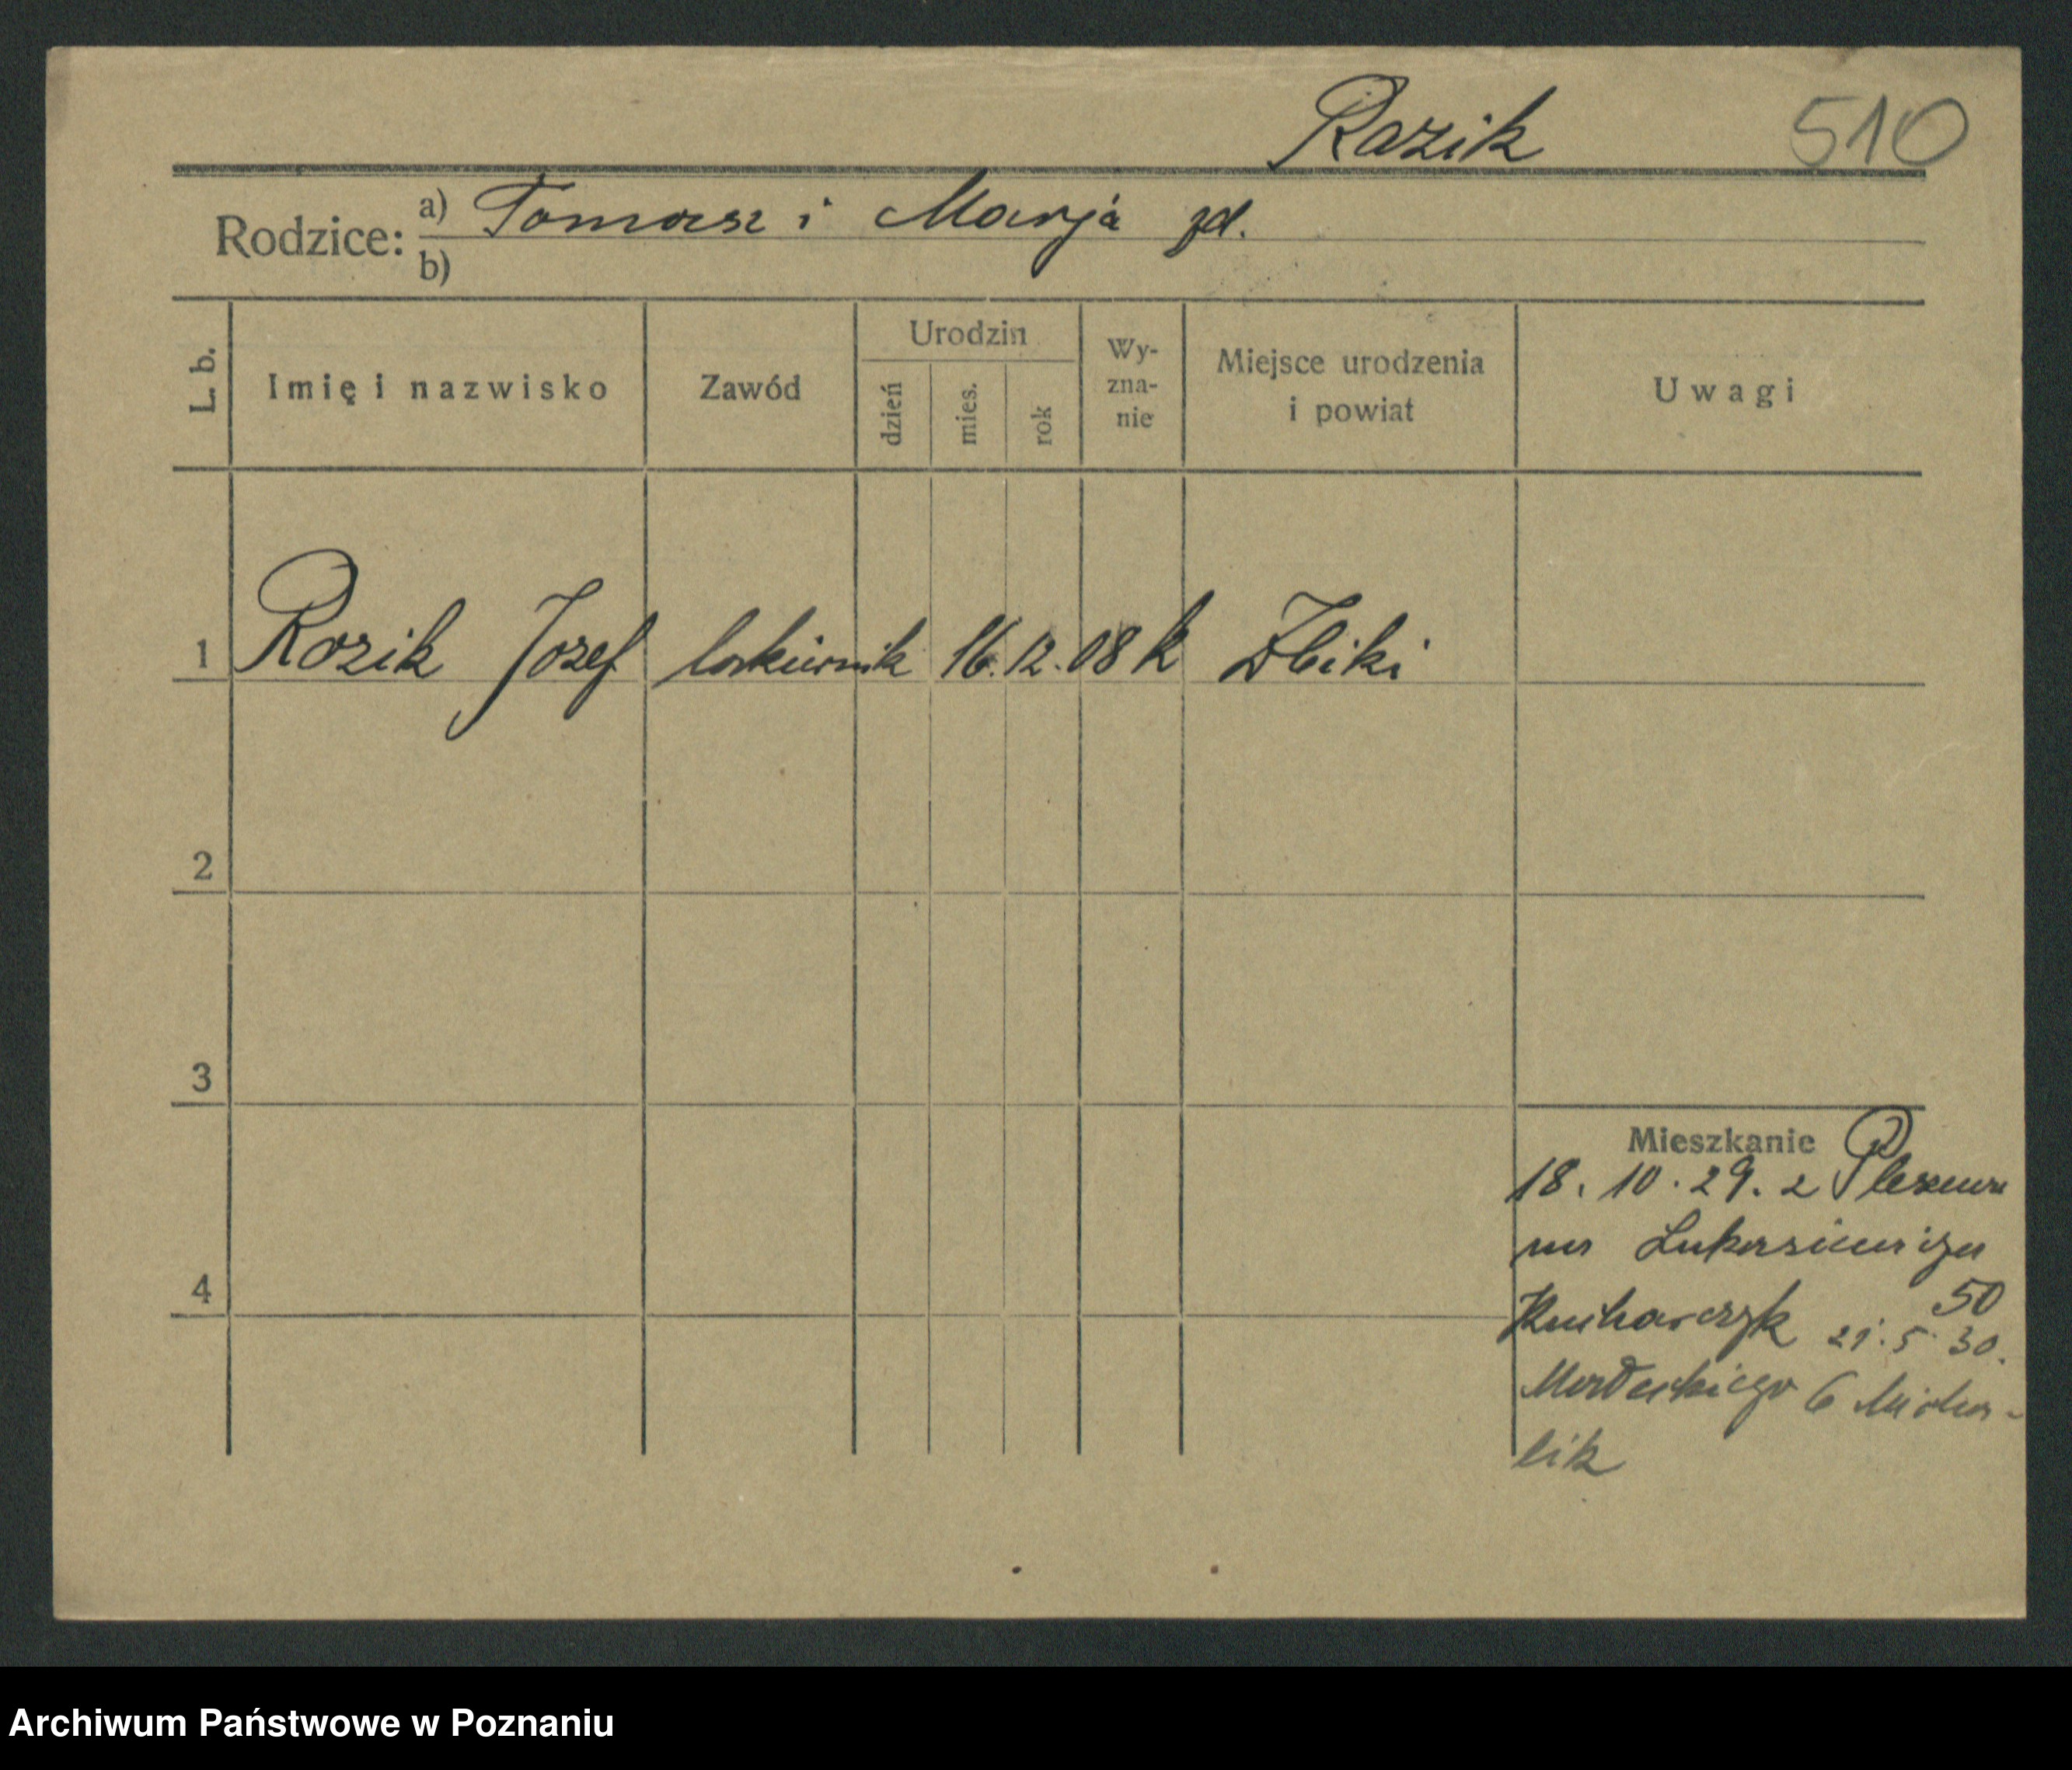 Razik 510
Rodzice: a) Tomasz i Marja zd.
b)
L. b. Imię i nazwisko Zawód Urodzin dzień mies. rok Wy-zna-nie Miejsce urodzenia i powiat Uwagi
1 Rozik Jozef lakiernik 16. 12. 08 k Zbiki
2
3
Mieszkanie
18. 10. 29. z Pleszewa
na Lukasiewicza
50
4
Kucharczyk 21. 5. 30.
6 Micha-
lik
Archiwum Państwowe w Poznaniu